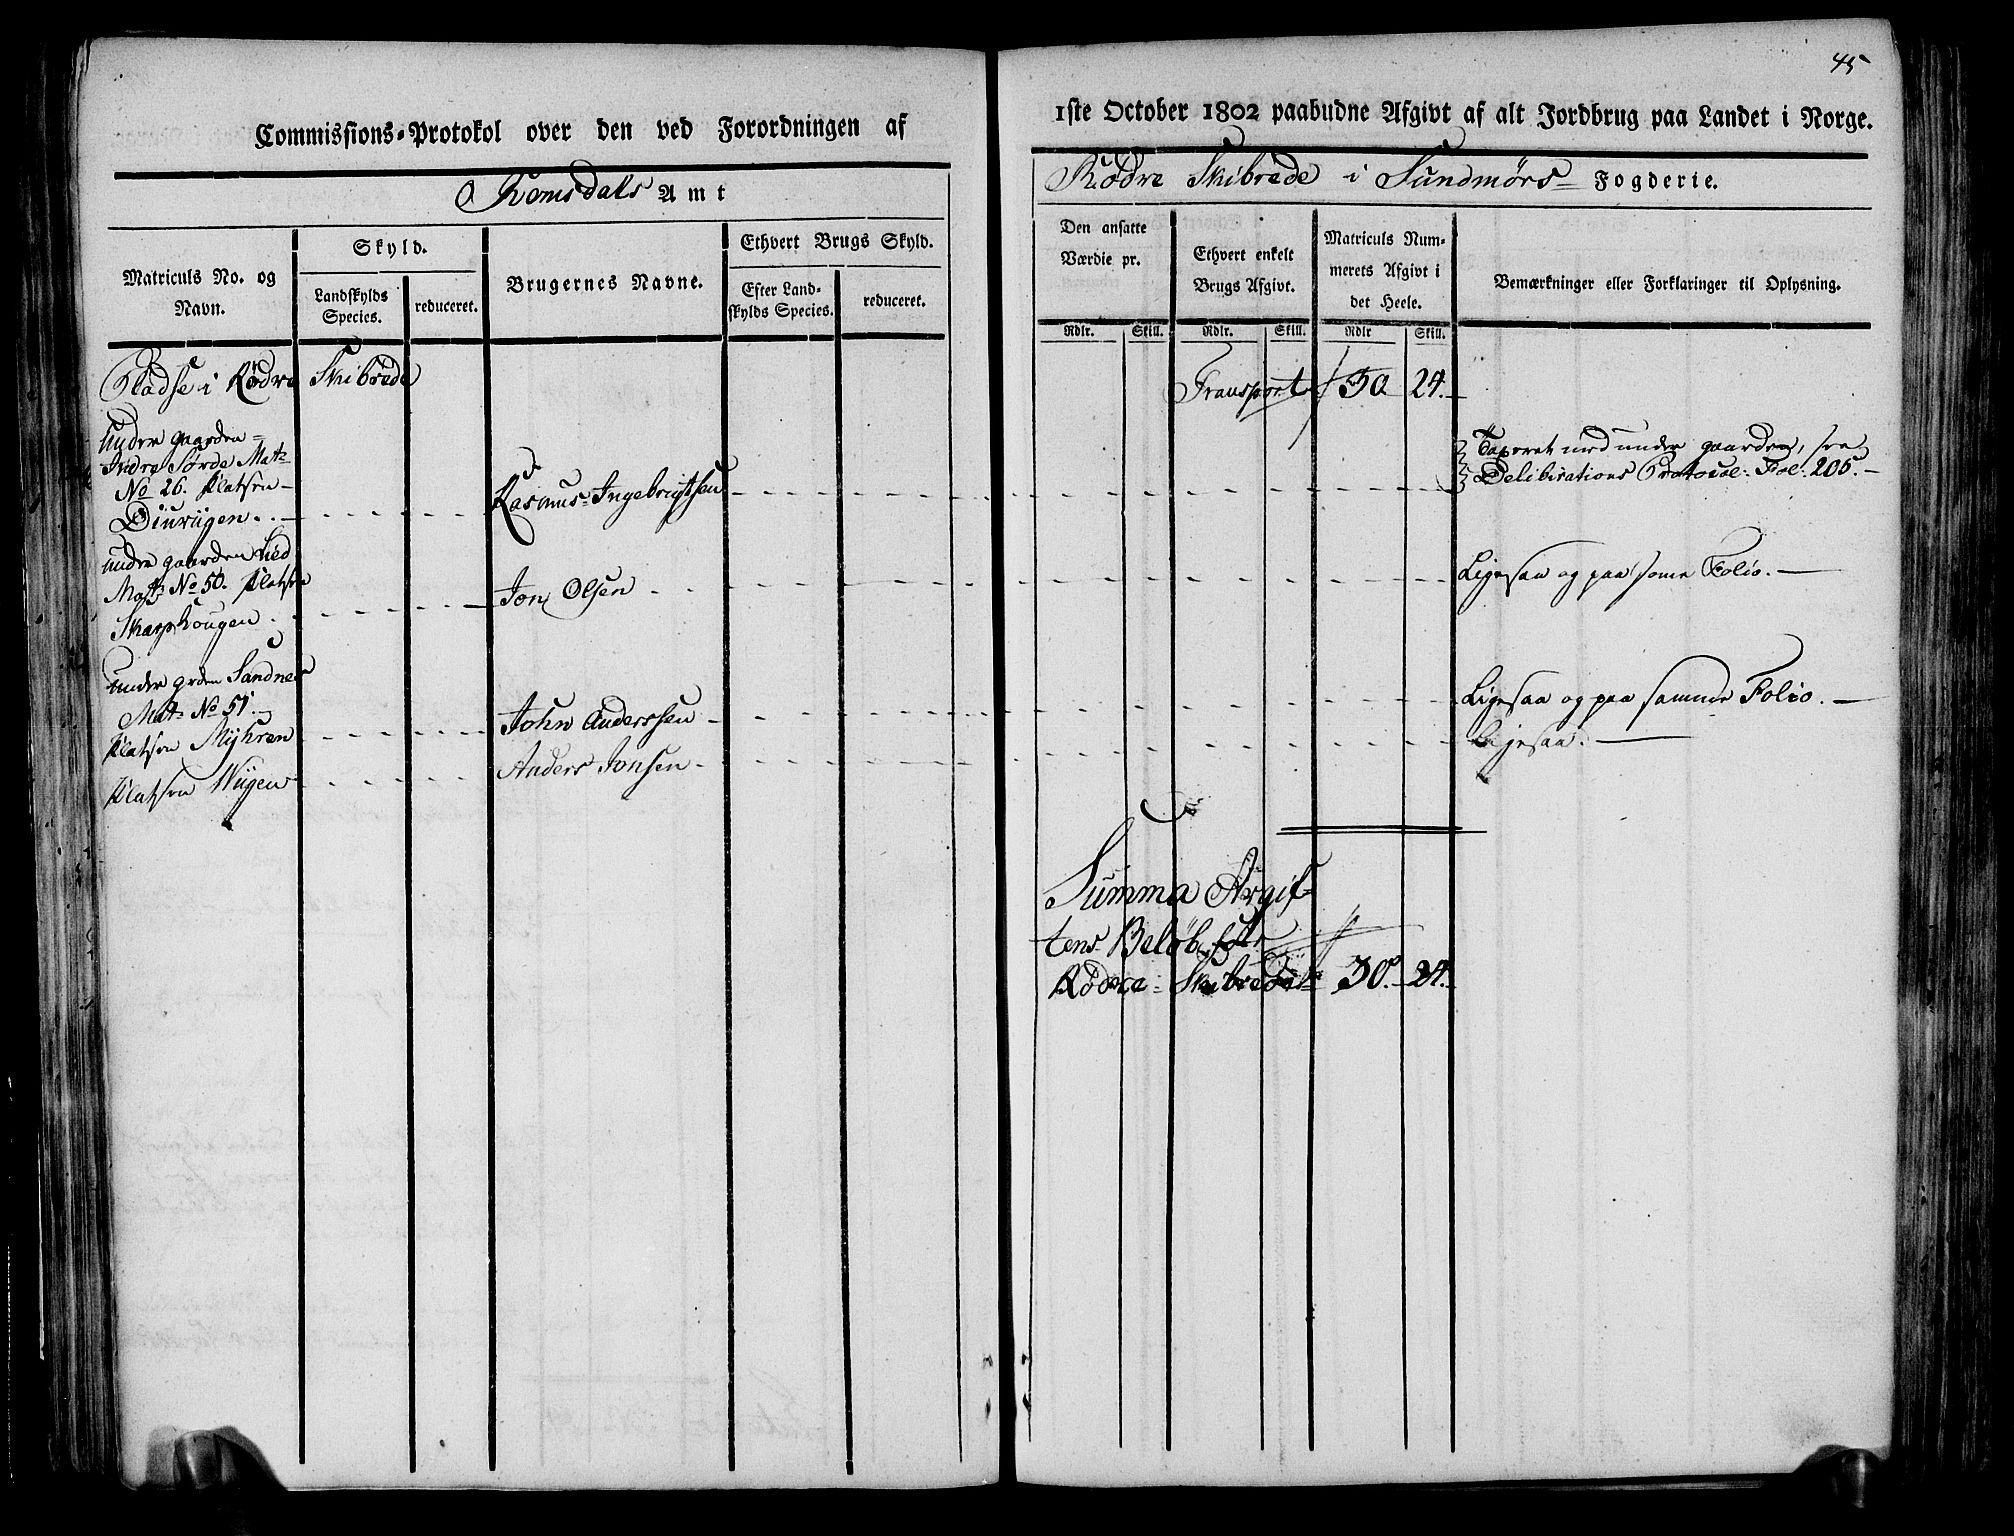 45
Commissions-Protokol over den ved Forordningen af
1ste October 1802 paabudne Afgivt af alt Jordbrug paa Landet i Norge.
Romsdals Amt
Rødre Skibrede i Sundmørs Fogderie.
Matriculs No. og
Navn.
Skyld.
Landskylds
Species.
reduceret.
Brugernes Navne.
Ethvert Brugs Skyld.
Efter Land-
skylds Species.
reduceret.
Den ansatte
Værdie pr.
Rdlr. Skill.
Ethvert enkelt
Brugs Afgivt.
Rdlr. Skill.
Matriculs Num-
merets Afgivt i
det Heele.
Rdlr Skill.
Bemærkninger eller Forklaringer til Oplysning.
Pladse i Rødre Skibrede
Transport 30 24.
Under gaarden
Indre Sørde Mat:
No 26. Platsen
Diurügen.
Rasmus Ingebrigtsen
Taxeret med under gaarden, see
Deliberations Protocol: Fol: 205.
under gaarden Lied
Mat: No 50. Platsen
Skarphougen.
Jon Olsen
Ligesaa og paa same Folio.
under grden Sandnes
Mat: No 51.
Platsen Myhren
John Anderssen
Ligesaa og paa samme Folio.
Platsen Wügen
Anders Jonsen
Ligesaa.
Summa Afgif-
tens Beløb for
Rødre Skibrede 30. 24.